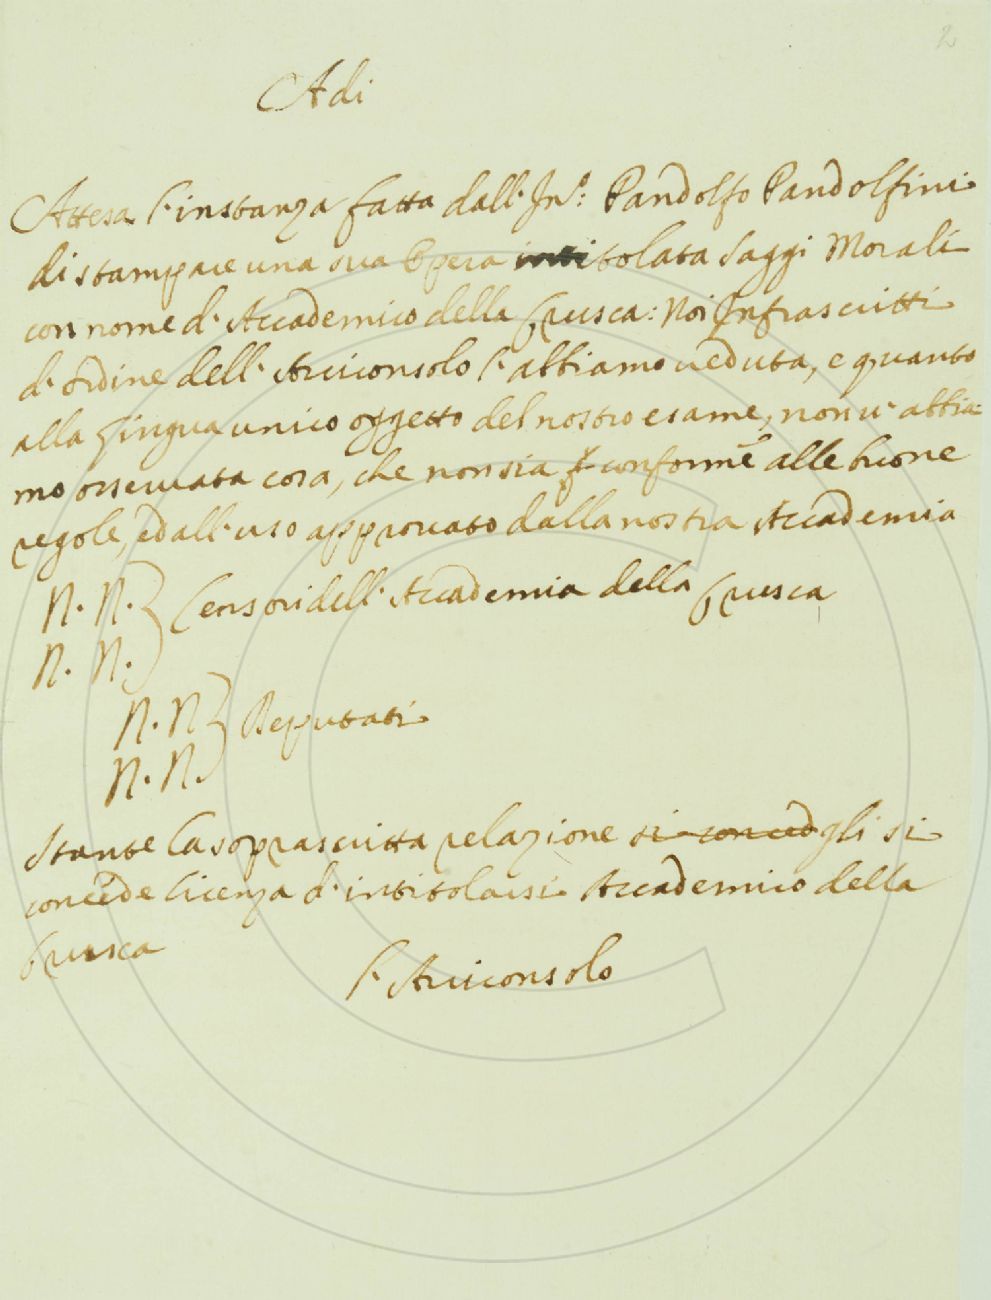 2
Adi
Attesa l'instanza fatta dall' Inº: Pandolfo Pandolfini
di stampare una sua Opera intitolata Saggi Morali
con nome d'Accademico della Crusca: Noi Infrascritti
d'ordine dell'Arciconsolo l'abbiamo veduta, e quanto
alla lingua unico oggetto del nostro esame, non v'abbia=
mo osservata cosa, che non sia conforme alle buone
regole, ed all'uso approvato dalla nostra Accademia
N. N. } Censori dell'Accademia della Crusca
N. N.
N. N. } Deputati
N. N.
Stante la soprascritta relazione si conced gli si
concede licenza d'intitolarsi Accademico della
Crusca
L'Arciconsolo